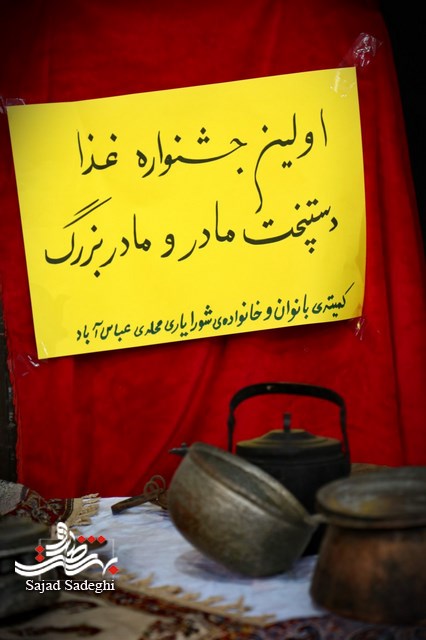 اولین جشنواره غذا
دستپخت مادر و مادربزرگ
کمیته‌ی بانوان و خانواده‌ی شورایاری محله‌ی عباس آباد
Sajad Sadeghi